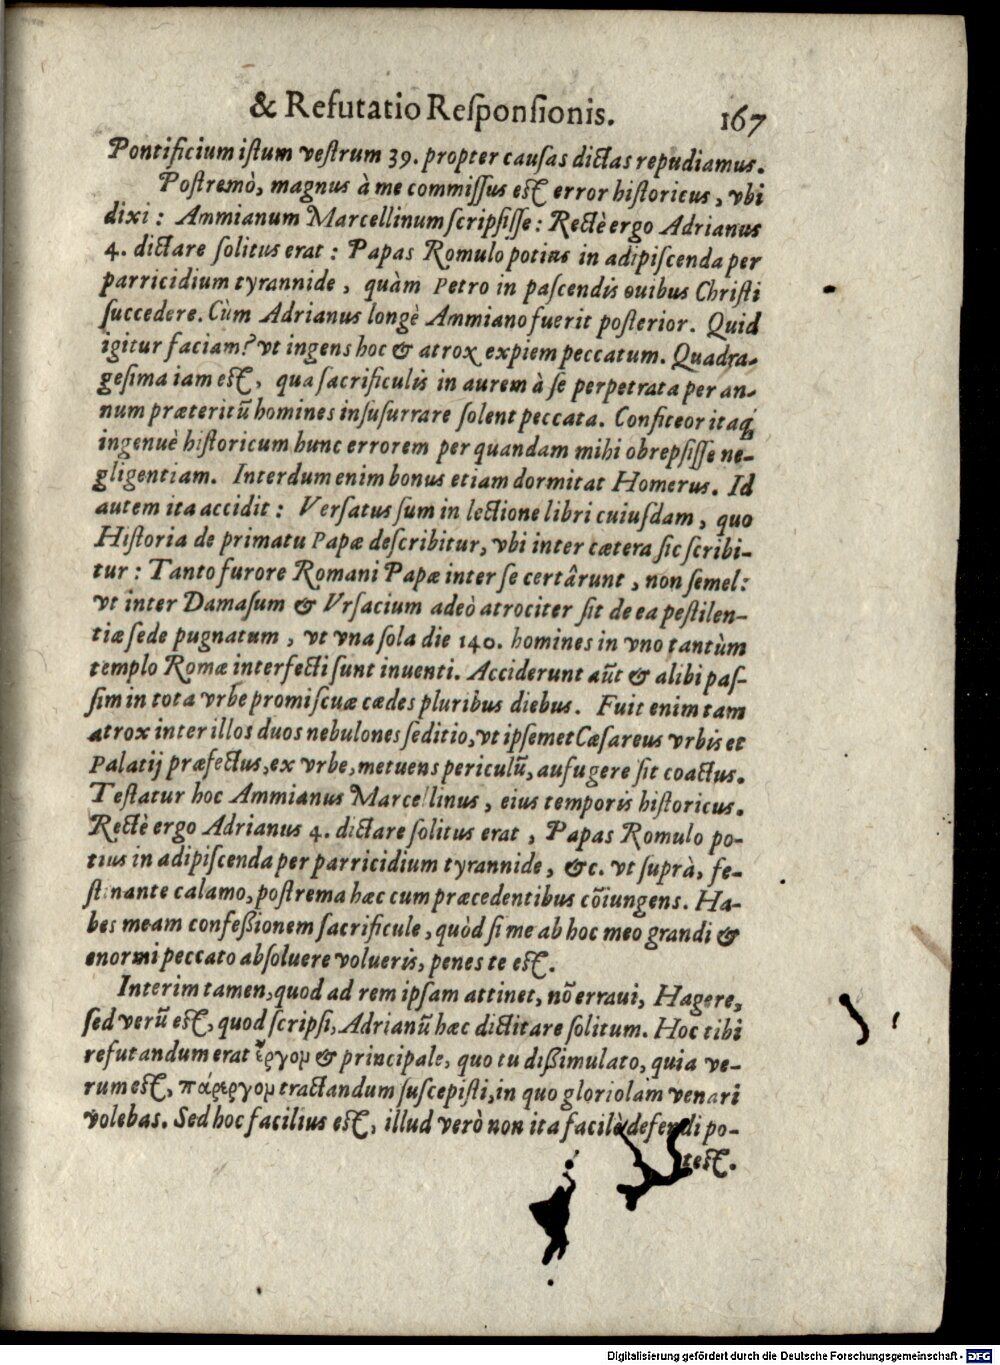 & Refutatio Reſponſionis. 167
Pontificium iſtum veſtrum 39. propter cauſas dictas repudiamus.
Poſtremò, magnus à me commiſſus eſt error hiſtoricus, vbi
dixi: Ammianum Marcellinum ſcripſiſſe: Rectè ergo Adrianus
4. dictare ſolitus erat: Papas Romulo potius in adipiſcenda per
parricidium tyrannide, quàm Petro in paſcendis ouibus Chriſti
ſuccedere. Cùm Adrianus longè Ammiano fuerit poſterior. Quid
igitur faciam? vt ingens hoc & atrox expiem peccatum. Quadra-
geſima iam eſt, qua ſacrificulis in aurem à ſe perpetrata per an-
num præteritū homines inſuſurrare ſolent peccata. Confiteor itaq́
ingenuè hiſtoricum hunc errorem per quandam mihi obrepſiſſe ne-
gligentiam. Interdum enim bonus etiam dormitat Homerus. Id
autem ita accidit: Verſatus ſum in lectione libri cuiuſdam, quo
Hiſtoria de primatu Papæ deſcribitur, vbi inter cætera ſic ſcribi-
tur: Tanto furore Romani Papæ inter ſe certârunt, non ſemel:
vt inter Damaſum & Vrſacium adeò atrociter ſit de ea peſtilen-
tiæ ſede pugnatum, vt vna ſola die 140. homines in vno tantùm
templo Romæ interfecti ſunt inuenti. Acciderunt aūt & alibi paſ-
ſim in tota vrbe promiſcuæ cædes pluribus diebus. Fuit enim tam
atrox inter illos duos nebulones ſeditio, vt ipſemet Cæſareus vrbis et
Palatij præfectus, ex vrbe, metuens periculū, aufugere ſit coactus.
Teſtatur hoc Ammianus Marcellinus, eius temporis hiſtoricus.
Rectè ergo Adrianus 4. dictare ſolitus erat, Papas Romulo po-
tius in adipiſcenda per parricidium tyrannide, &c. vt ſuprà, fe-
ſtinante calamo, poſtrema hæc cum præcedentibus cōiungens. Ha-
bes meam confeßionem ſacrificule, quòd ſi me ab hoc meo grandi &
enormi peccato abſoluere volueris, penes te eſt.
Interim tamen, quod ad rem ipſam attinet, nō erraui, Hagere,
ſed verū eſt, quod ſcripſi, Adrianū hæc dictitare ſolitum. Hoc tibi
refutandum erat ἔργομ & principale, quo tu dißimulato, quia ve-
rum eſt, πάρεργομ tractandum ſuſcepiſti, in quo gloriolam venari
volebas. Sed hoc facilius eſt, illud verò non ita facilè defendi po-
teſt.
Digitalisierung gefördert durch die Deutsche Forschungsgemeinschaft - DFG